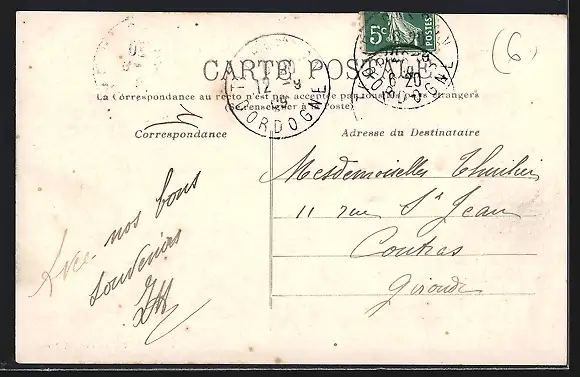 5c
POSTES
(6)
CARTE POSTALE
12 - 9
09
DORDOGNE
6 20
DORDOGNE
La Correspondance au recto n'est pas acceptée par tous les pays étrangers
(Se renseigner à la Poste)
Correspondance
Adresse du Destinataire
Avec nos bons
souvenirs
Mesdemoiselles
11 rue St Jean
Coutras
Gironde